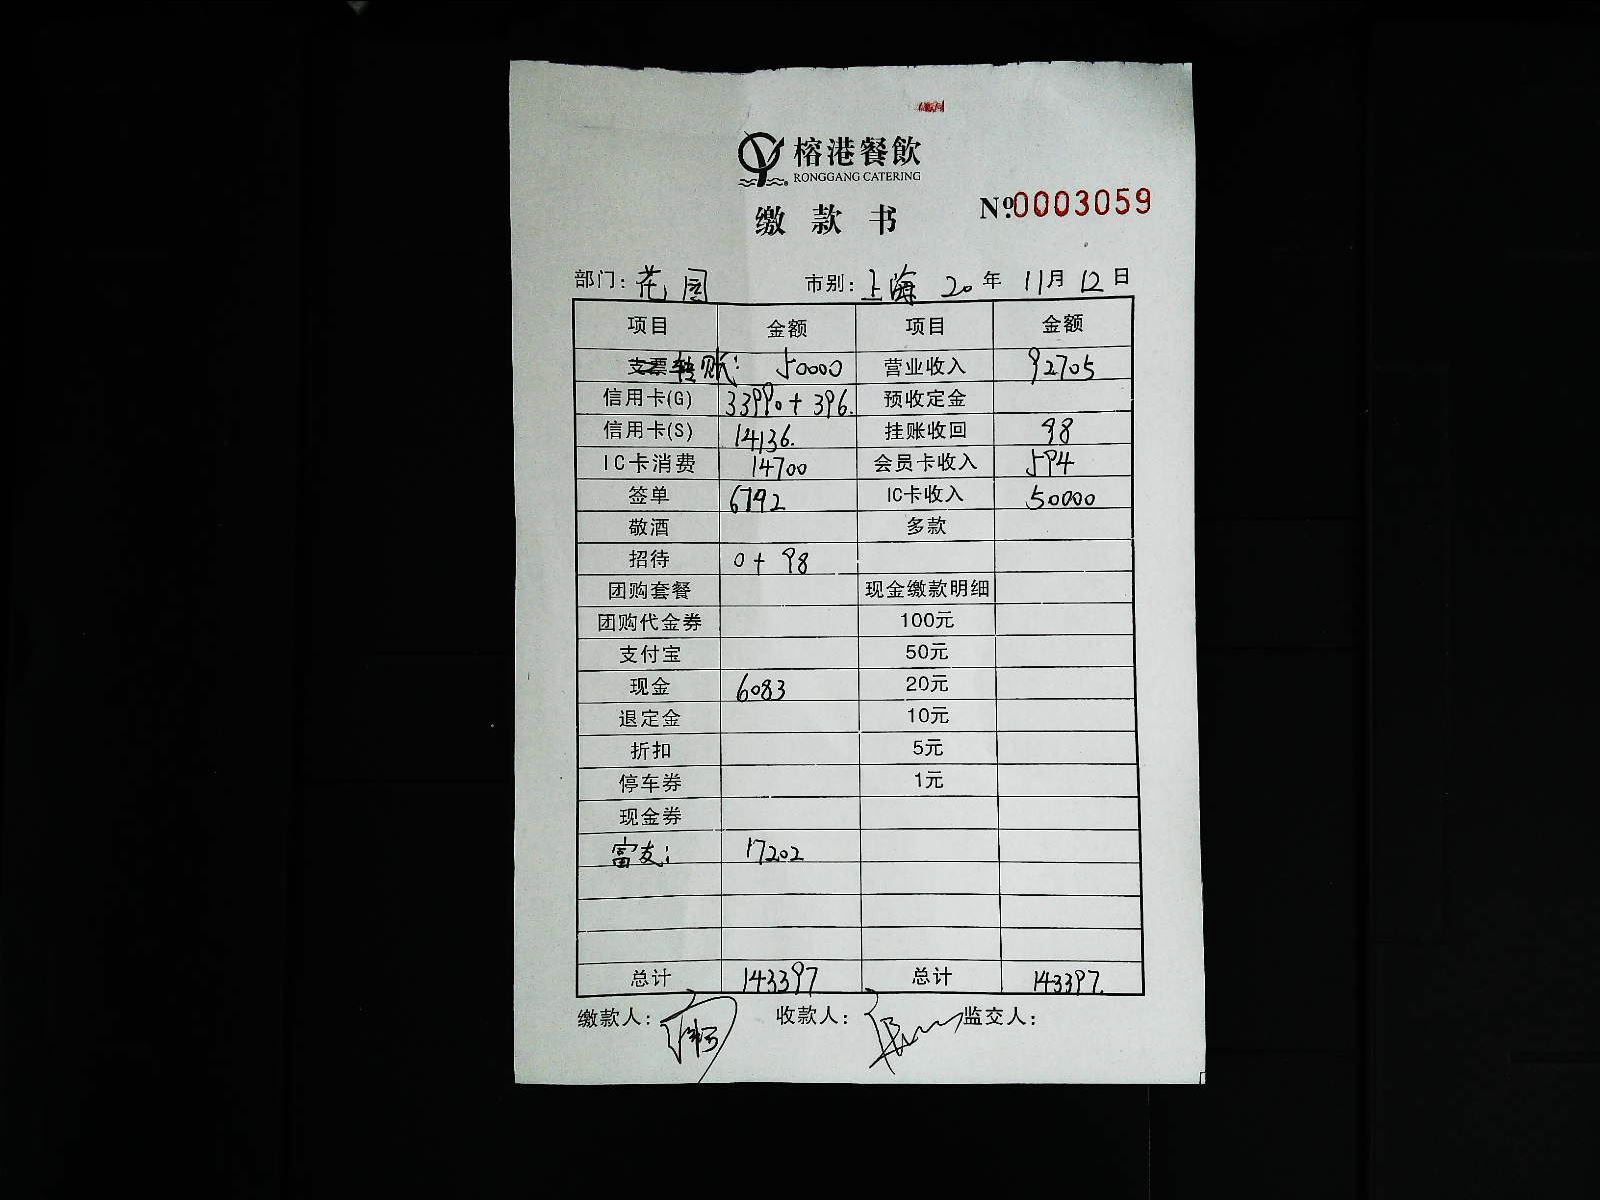 榕港餐飲
RONGGANG CATERING
缴款书 №:0003059
部门: 花园 市别: 上海 20年 11月 12日
项目 金额 项目 金额
支票 转账: 50000 营业收入 92705
信用卡(G) 33990+396. 预收定金
信用卡(S) 14136. 挂账收回 98
IC卡消费 14700 会员卡收入 594
签单 6792 IC卡收入 50000
敬酒 多款
招待 0+98
团购套餐 现金缴款明细
团购代金券 100元
支付宝 50元
现金 6083 20元
退定金 10元
折扣 5元
停车券 1元
现金券
富友: 17202
总计 143397 总计 143397.
缴款人: 收款人: 监交人: